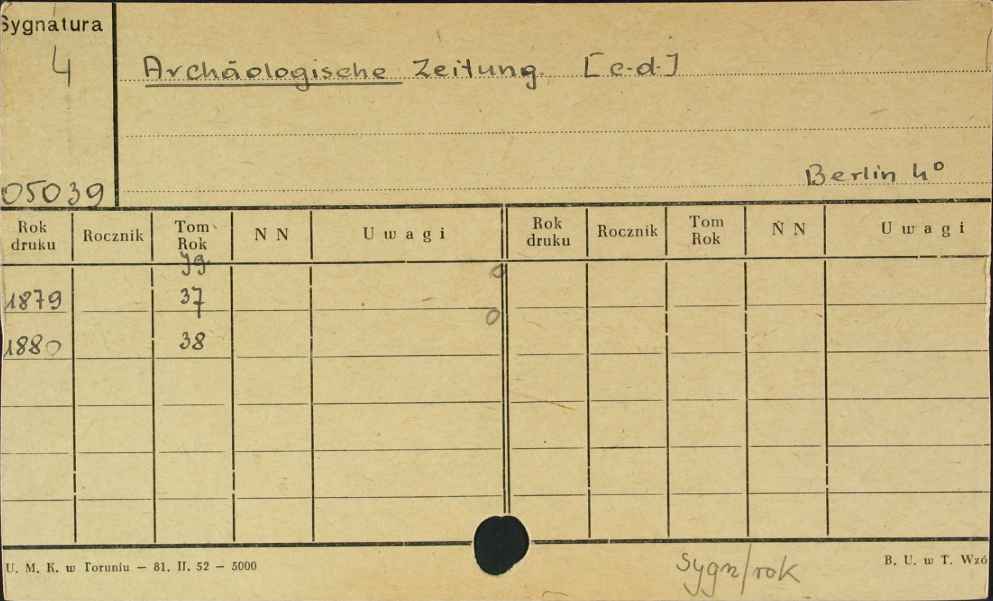 Sygnatura
4
Archäologische Zeitung. [c.d.]
05039
Berlin 4°
Rok druku Rocznik Tom Rok N N Uwagi Rok druku Rocznik Tom Rok N N Uwagi
Jg.
1879 37
1880 38
U. M. K. w Toruniu — 81. II. 52 — 5000
Sygn/rok
B. U. w T. Wzó